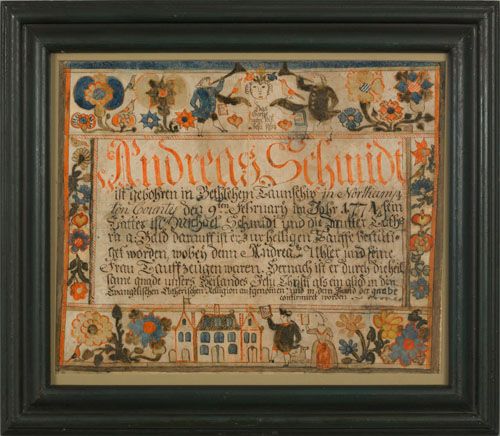 Andreas Schmidt
ist gebohren in Bethlehem Taunschip in Northamp
ton County den 9ten February im Jahr 1774 sein
Vatter ist Michael Schmidt und die Mutter Cath
darauf ist er zur heiligen Tauffe befördi
get worden, wobey denn Andreas und seine
Frau Tauffzeugen waren. Hernach ist er durch die heil
same gnade unsers Heilandes Jesu Christi als ein glied in den
Evangelischen Lutherischen Religion aufgenomen und in dem Bund der gnade
confirmiret worden